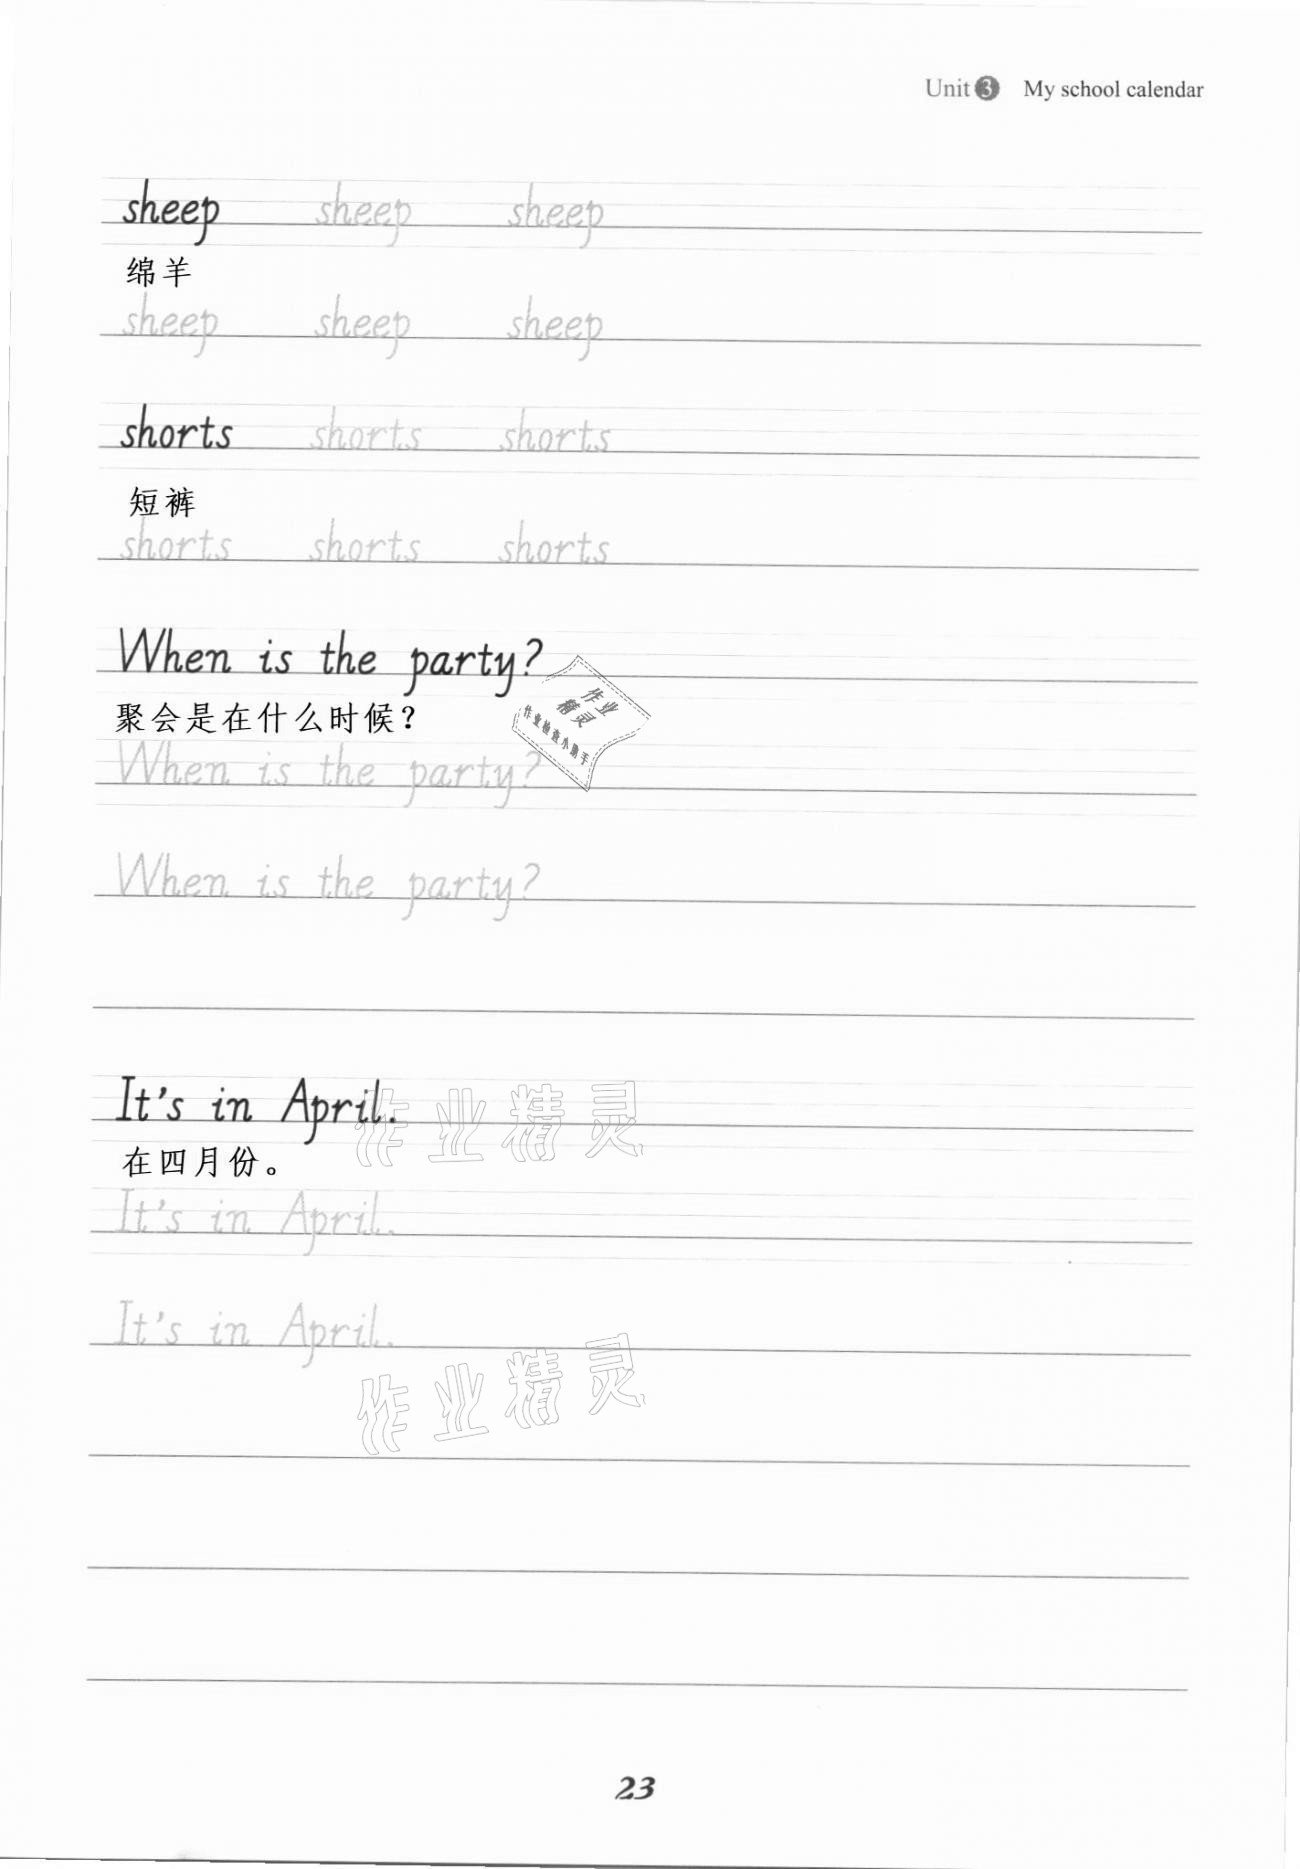 Unit 3 My school calendar
sheep sheep sheep
绵羊
sheep sheep sheep
shorts shorts shorts
短裤
shorts shorts shorts
When is the party?
作业
精灵
作业检查小助手
聚会是在什么时候？
When is the party?
When is the party?
It's in April.
作业精灵
在四月份。
It's in April.
It's in April.
作业精灵
23